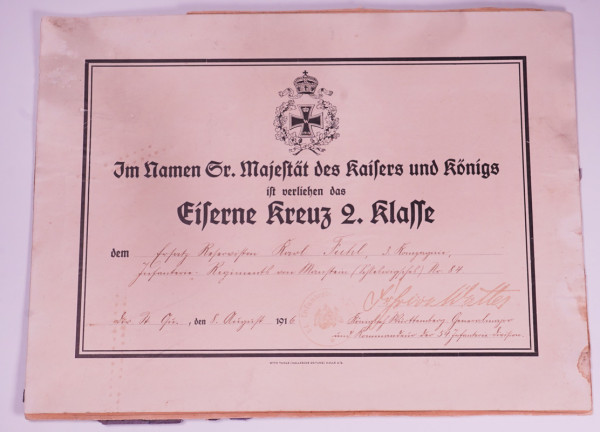 Im Namen Sr. Majestät des Kaisers und Königs
ist verliehen das
Eiserne Kreuz 2. Klasse
dem Ersatz Reservisten Karl 3. Kompagnie,
Infanterie-Regiments von Manstein (Schleswigsches) Nr. 84
den 8. August 1916
Königlich Württemberg. Generalmajor
und Kommandeur der 54. Infanterie Division.